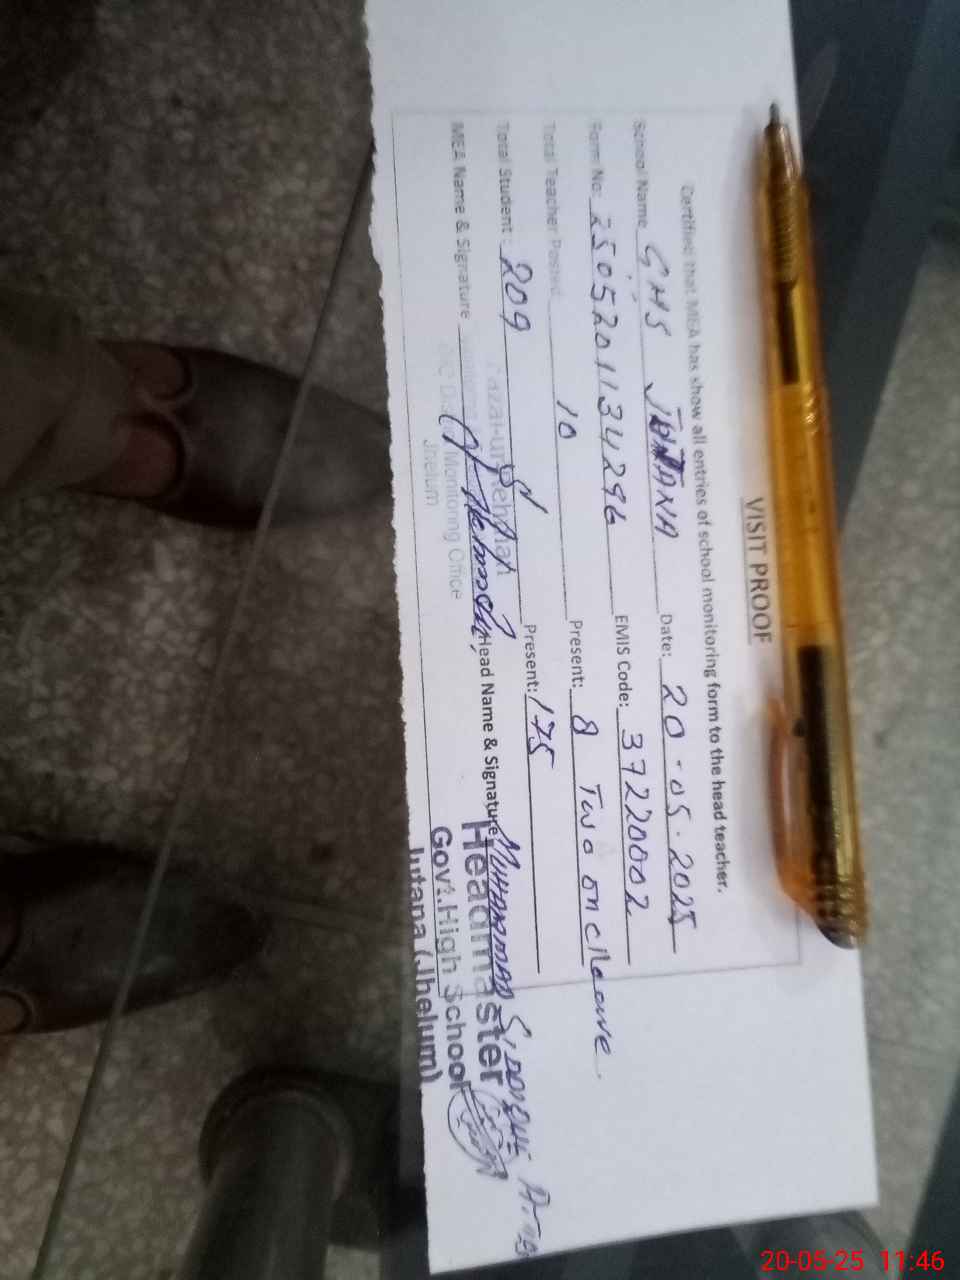 VISIT PROOF
Certified that MEA has show all entries of school monitoring form to the head teacher.
School Name GHS JUTANA Date: 20-05-2025
Form No: 2505201134296 EMIS Code: 37220002
Total Teacher Posted 10 Present: 8 Two on c/leave.
Total Student: 209 Present: 175
MEA Name & Signature Head Name & Signature MUHAMMAD SIDDIQUE
Fazal-ur-Rehman
Monitoring Office
Jhelum
Headmaster
Govt.High School
Jutana (Jhelum)
20-05-25 11:46